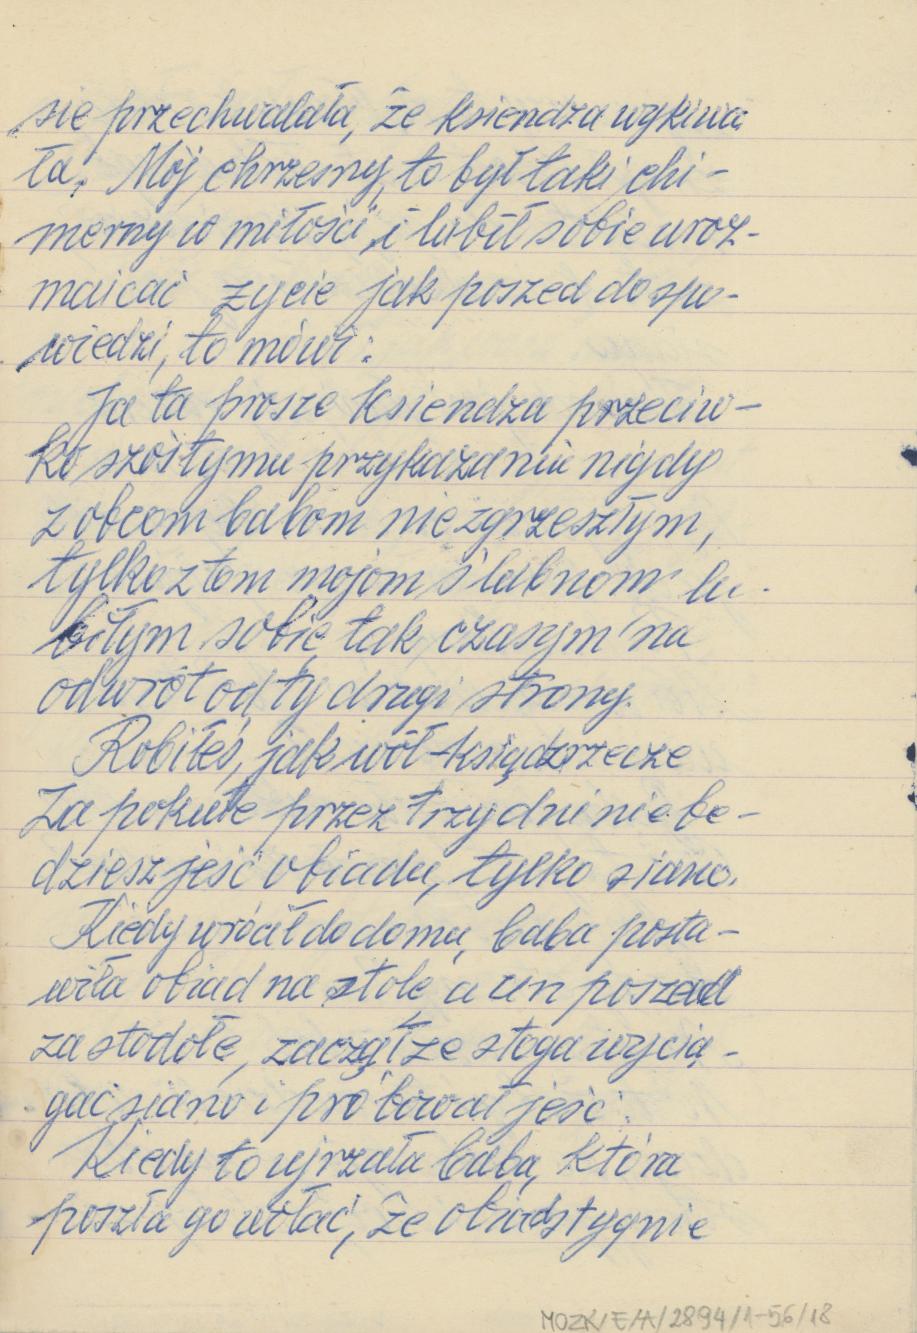 się przechwalała, że ksiendza wykiwa
ła. Mój chrzesny, to był taki chi-
merny w miłości, i lubił sobie uroz-
maicać życie jak poszed do spo-
wiedzi, to mówi:
Ja ta prosze ksiendza przeciw-
ko szóstymu przykazaniu nigdy
z obcom babom nie zgrzeszłym,
tylko z tom mojom ślubnom lu-
biłym sobie tak czasym na
odwrót od ty drugi strony.
Robiłeś, jak wół - ksiądz rzecze
Za pokute przez trzy dni nie be-
dziesz jeść obiadu, tylko siano.
Kiedy wrócił do domu, baba posta-
wiła obiad na stole a un poszed
za stodołe, zaczął ze stoga wycią-
gać siano i próbował jeść.
Kiedy to ujrzała baba, która
poszła go wołać, że obiad stygnie
MOZK/E/A/2894/1-56/18